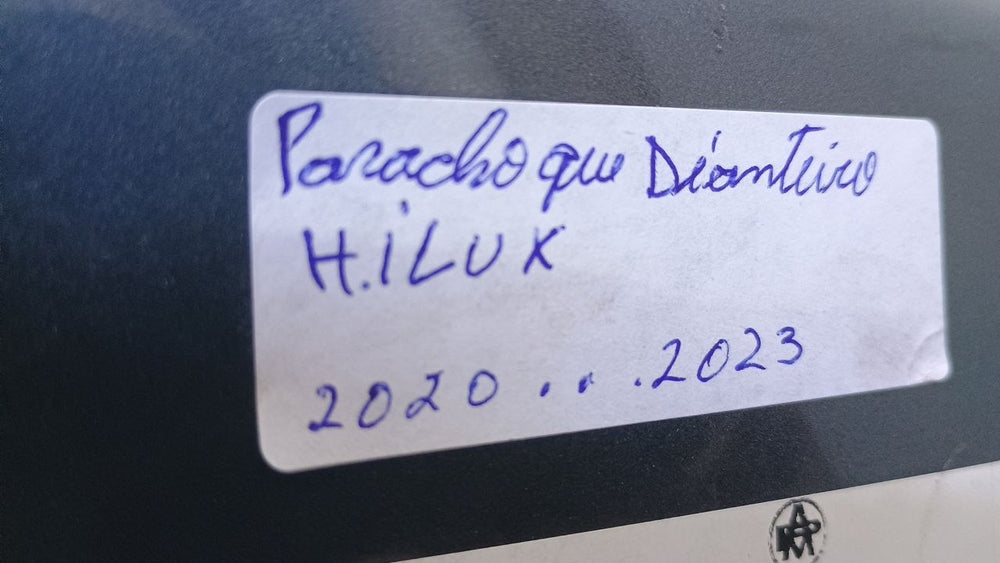 Parachoque Diánteiro
H.iLUX
2020 . . . 2023